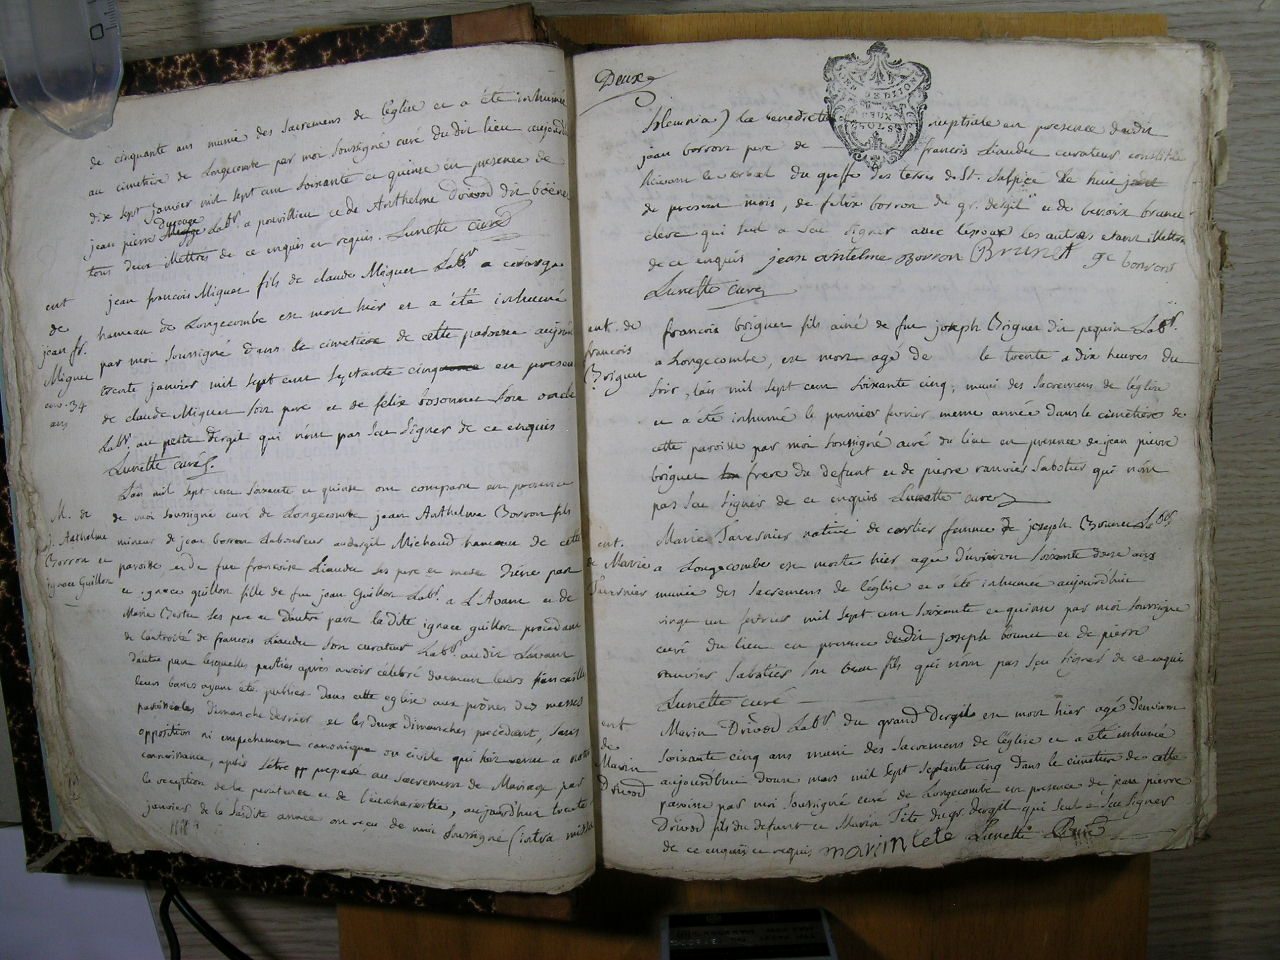 de cinquante ans munie des sacremens de l'église et a été inhumée
au cimetière de Longecombe par moi soussigné curé dudit lieu aujourdui
dix sept janvier mil sept cent soixante et quinze en presence de
jean pierre Labr. a et de Anthelme Drivod dit
tous deux illettrés de ce enquis et requis. Lunette curé
ent
de
jean fr.
Miguet
env. 34
ans
jean françois Miguet fils de claude Miguet Labr. a
hameau de Longecombe est mort hier et a été inhumé
par moi soussigné dans le cimetière de cette paroisse aujourdui
trente janvier mil sept cent septante cinq en presence
de claude Miguet son pere et de felix bosonnet son oncle
Labr. au petit dergit qui n'ont pas sçu signer de ce enquis
Lunette curé.
M. de
j. Anthelme
Borron et
ignace Guillon
L'an mil sept cent soixante et quinze ont comparu en presence
de moi soussigné curé de Longecombe jean Anthelme Borron fils
mineur de jean borron laboureur audergil Michaud hameau de cette
paroisse, et de fue françoise Liaudet ses pere et mere d'une part
et ignace guillon fille de fut jean Guillon Labr. a L'Avant et de
Marie ses pere et d'autre part ladite ignace guillon procedant
de l'autorité de francois Liaudet son curateur Labr. audit Lavant
d'autre part lesquelles parties après avoir célébré duement leurs fiancailles
leurs bans ayant été publiés dans cette eglise aux prônes des messes
paroissiales dimanche dernier et les deux dimanches précedent, sans
opposition ni empechement canonique ou civile qui soit venu a notre
connoissance, après s'être preparé au sacrement de Mariage par
la reception de la penitence et de l'eucharistie, aujourdhui trente
janvier de la susdite année ont recu de moi soussigné (intra missa
Deux
GEN DE DIJON
DEUX
SOLS
solemnia) la benediction nuptiale en presence dudit
jean borron pere de francois Liaudet curateur constitué
suivant le verbal du greffe des terres de St. Sulpice le huit
de present mois, de felix borron du gr. dergil et de benoix brunet
clerc qui seul a sçu signer avec lepoux les autres etant illettrés
de ce enquis jean antelme borron Brunet
Lunette curé
ent. de
francois
Briguet
francois briguet fils ainé de fut joseph Briguet dit pequin Labr.
a Longecombe, est mort agé de le trente a dix heures du
soir, l'an mil sept cent soixante cinq, muni des sacremens de l'église
et a été inhumé le premier fevrier meme année dans le cimetière de
cette paroisse par moi soussigné curé du lieu en presence de jean pierre
briguet frere du defunt et de pierre ranvier sabotier qui n'ont
pas sçu signer de ce enquis Lunette curé
ent.
de Marie
Tavernier
Marie Tavernier native de cortier femme de joseph Bonnet Labr.
a Longecombe est morte hier agée d'environ soixante douze ans
munie des sacremens de l'église et a été inhumée aujourdhui
vingt un fevrier mil sept cent soixante et quinze par moi soussigné
curé du lieu en presence dudit joseph bonnet et de pierre
ranvier sabotier son beau fils qui n'ont pas sçu signer de ce enqui
Lunette curé
ent
de
Marin
Drivod
Marin Drivod Labr. du grand Dergil est mort hier agé d'environ
soixante cinq ans muni des sacremens de l'église et a été inhumé
aujourdhui douze mars mil sept septante cinq dans le cimetière de cette
paroisse par moi soussigné curé de Longecombe en presence de jean pierre
Drivod fils du defunt et Marin Tete du gr. dergil qui seul a sçu signer
de ce enquis et requis marin tete Lunette Curé